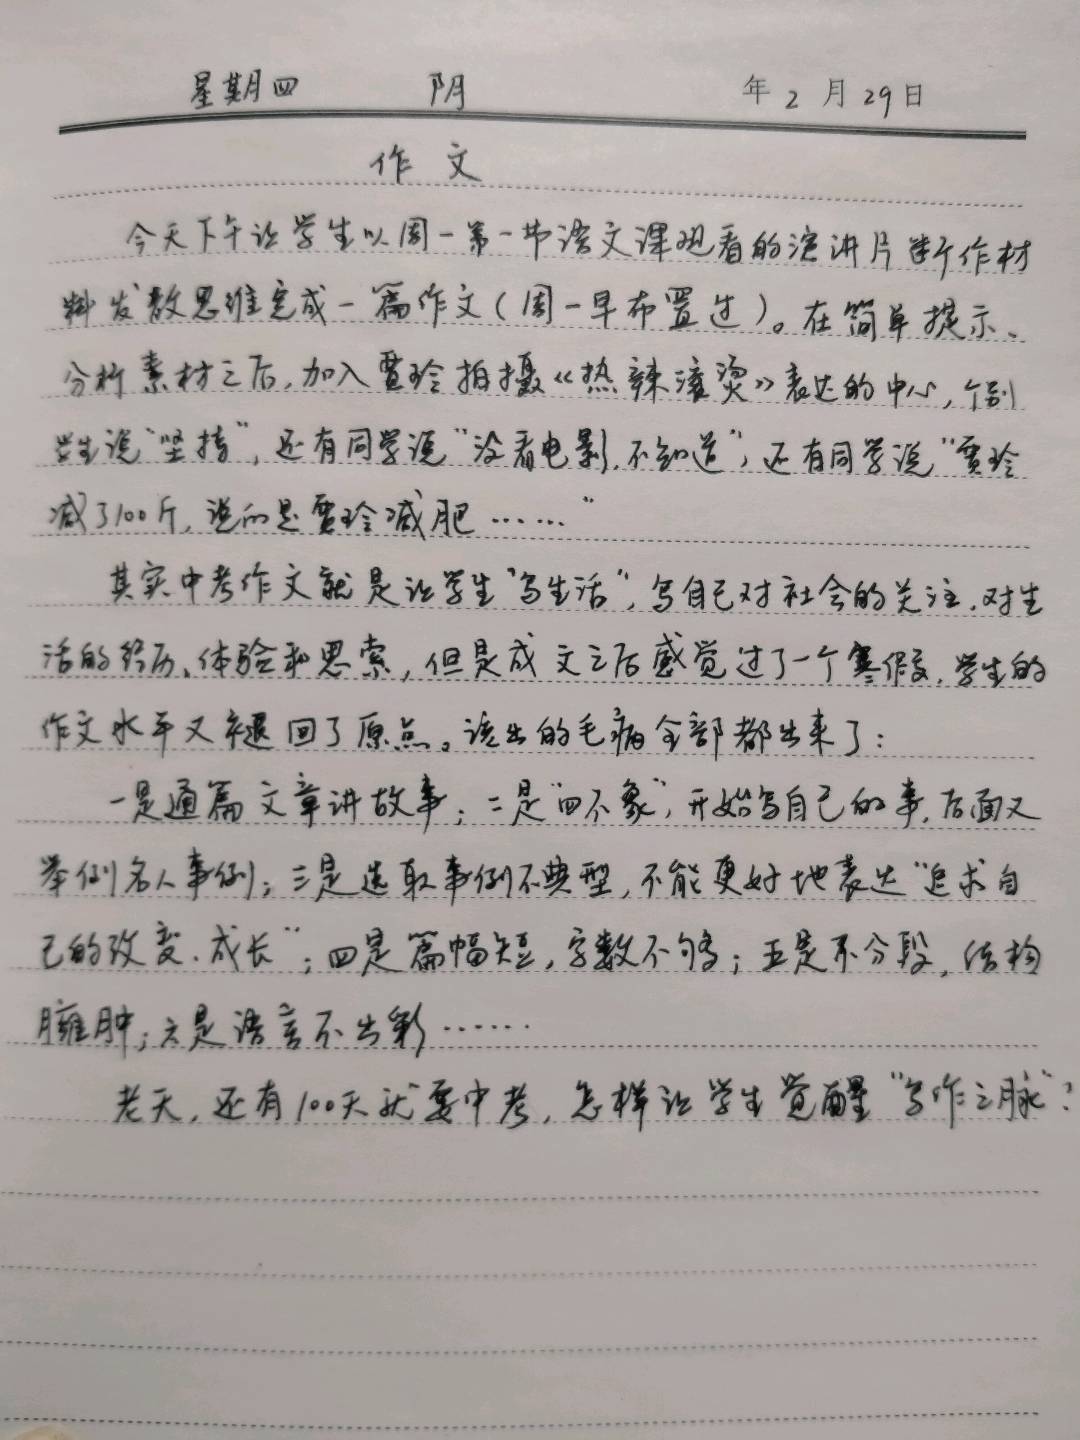 星期四 阴 年2月29日
作文
今天下午让学生以周一第一节语文课观看的演讲片断作材
料发散思维完成一篇作文(周一早布置过)。在简单提示、
分析素材之后,加入贾玲拍摄《热辣滚烫》表达的中心,个别
学生说"坚持",还有同学说"没看电影,不知道",还有同学说"贾玲
减了100斤,说的是贾玲减肥……"
其实中考作文就是让学生"写生活",写自己对社会的关注,对生
活的经历、体验和思索,但是成文之后感觉过了一个寒假,学生的
作文水平又褪回了原点。该出的毛病全部都出来了:
一是通篇文章讲故事;二是"四不象",开始写自己的事,后面又
举例名人事例;三是选取事例不典型,不能更好地表达"追求自
己的改变、成长";四是篇幅短,字数不够;五是不分段,结构
臃肿;六是语言不出彩……
老天,还有100天就要中考,怎样让学生觉醒"写作之脉"?